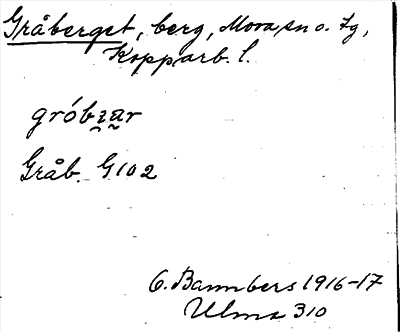 Gråberget, berg, Mora sn o. tg,
Kopparb. l.
gróbɪar
Gråb. G102
O. Bannbers 1916-17
Ulma 310